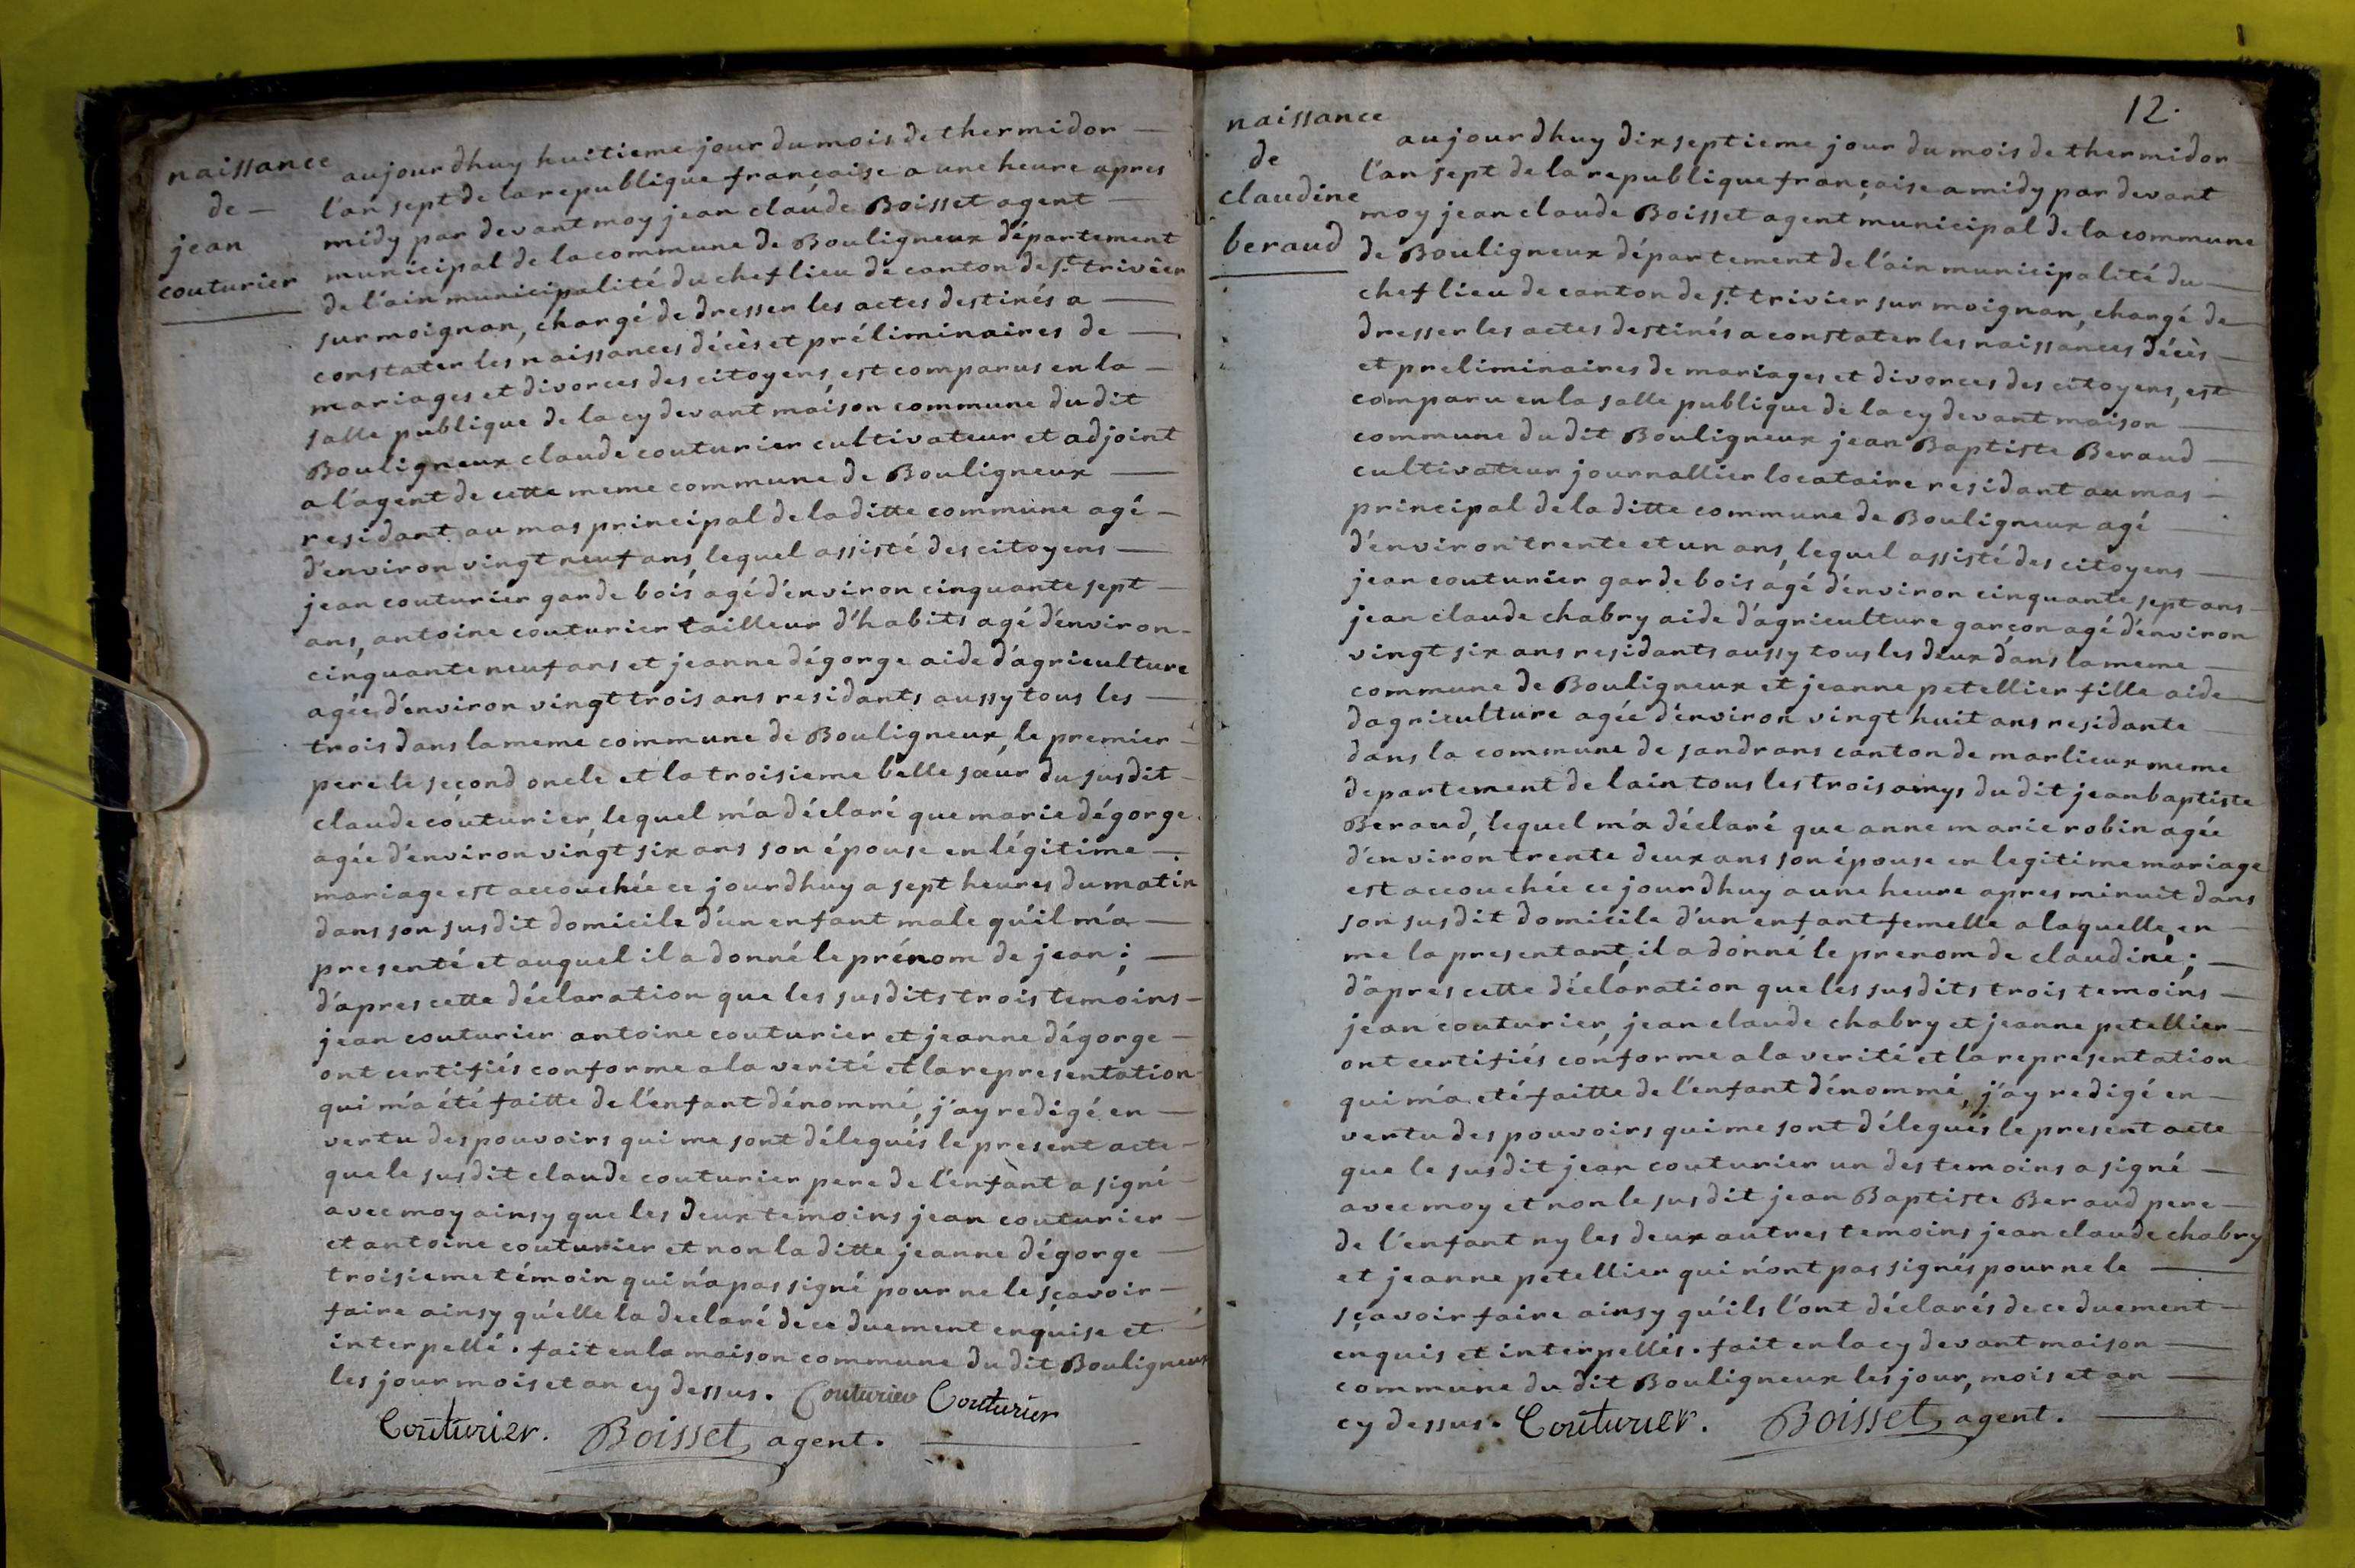 naissance
de —
jean
couturier
aujourdhuy huitieme jour du mois de thermidor —
l'an sept de la republique française a une heure apres
midy par devant moy jean claude Boisset agent —
municipal de la commune de Bouligneux département
de l'ain municipalité du chef lieu de canton de st. trivier
sur moignan, chargé de dresser les actes destinés a —
constater les naissances décès et préliminaires de —
mariages et divorces des citoyens, est comparus en la —
salle publique de la cy devant maison commune du dit
Bouligneux claude couturier cultivateur et adjoint
a l'agent de cette meme commune de Bouligneux —
residant au mas principal de la ditte commune agé —
d'environ vingt neuf ans, lequel assisté des citoyens —
jean couturier garde bois agé d'environ cinquante sept —
ans, antoine couturier tailleur d'habits agé d'environ —
cinquante neuf ans et jeanne dégorge aide d'agriculture
agée d'environ vingt trois ans residants aussy tous les —
trois dans la meme commune de Bouligneux, le premier —
pere le second oncle et la troisieme belle sœur du susdit —
claude couturier, lequel m'a déclaré que marie dégorge
agée d'environ vingt six ans son épouse en légitime —
mariage est accouchée ce jourdhuy a sept heures du matin
dans son susdit domicile d'un enfant male qu'il m'a —
presenté et auquel il a donné le prénom de jean ; —
d'apres cette déclaration que les susdits trois temoins —
jean couturier antoine couturier et jeanne dégorge —
ont certifiés conforme a la verité et la representation
qui m'a été faitte de l'enfant dénommé, j'ay redigé en —
vertu des pouvoirs qui me sont délegués le present acte —
que le susdit claude couturier pere de l'enfant a signé —
avec moy ainsy que les deux temoins jean couturier —
et antoine couturier et non la ditte jeanne dégorge —
troisieme témoin qui n'a pas signé pour ne le sçavoir —
faire ainsy qu'elle la declaré de ce duement enquise et —
interpellé. fait en la maison commune du dit Bouligneux
les jour mois et an cy dessus. Couturier Couturier
Couturier. Boisset, agent. —
12.
naissance
de
claudine
beraud
aujourdhuy dix septieme jour du mois de thermidor —
l'an sept de la republique française a midy par devant
moy jean claude Boisset agent municipal de la commune
de Bouligneux département de l'ain municipalité du —
chef lieu de canton de st. trivier sur moignan, chargé de —
dresser les actes destinés a constater les naissances décès —
et preliminaires de mariages et divorces des citoyens, est
comparu en la salle publique de la cy devant maison —
commune du dit Bouligneux jean Baptiste Beraud —
cultivateur journallier locataire residant au mas —
principal de la ditte commune de Bouligneux agé —
d'environ trente et un ans, lequel assisté des citoyens —
jean couturier garde bois agé d'environ cinquante sept ans —
jean claude chabry aide d'agriculture garçon agé d'environ
vingt six ans residants aussy tous les deux dans la meme —
commune de Bouligneux et jeanne petellier fille aide —
dagriculture agée d'environ vingt huit ans residante —
dans la commune de sandrans canton de marlieux meme
departement de lain tous les trois amys du dit jean baptiste
Beraud, lequel m'a déclaré que anne marie robin agée
d'environ trente deux ans son épouse en legitime mariage
est accouchée ce jourdhuy a une heure apres minuit dans
son susdit domicile d'un enfant femelle a laquelle, en —
me la presentant, il a donné le prenom de claudine ; —
d'apres cette déclaration que les susdits trois temoins —
jean couturier, jean claude chabry et jeanne petellier —
ont certifiés conforme a la verité et la representation
qui m'a eté faitte de l'enfant dénommé, j'ay redigé en —
vertu des pouvoirs qui me sont délegués le present acte
que le susdit jean couturier un des temoins a signé —
avec moy et non le susdit jean Baptiste Beraud pere —
de l'enfant ny les deux autres temoins jean claude chabry
et jeanne petellier qui n'ont pas signés pour ne le —
sçavoir faire ainsy qu'ils l'ont déclarés de ce duement —
enquis et interpellés. fait en la cy devant maison —
commune du dit Bouligneux les jour, mois et an —
cy dessus. Couturier. Boisset, agent. —